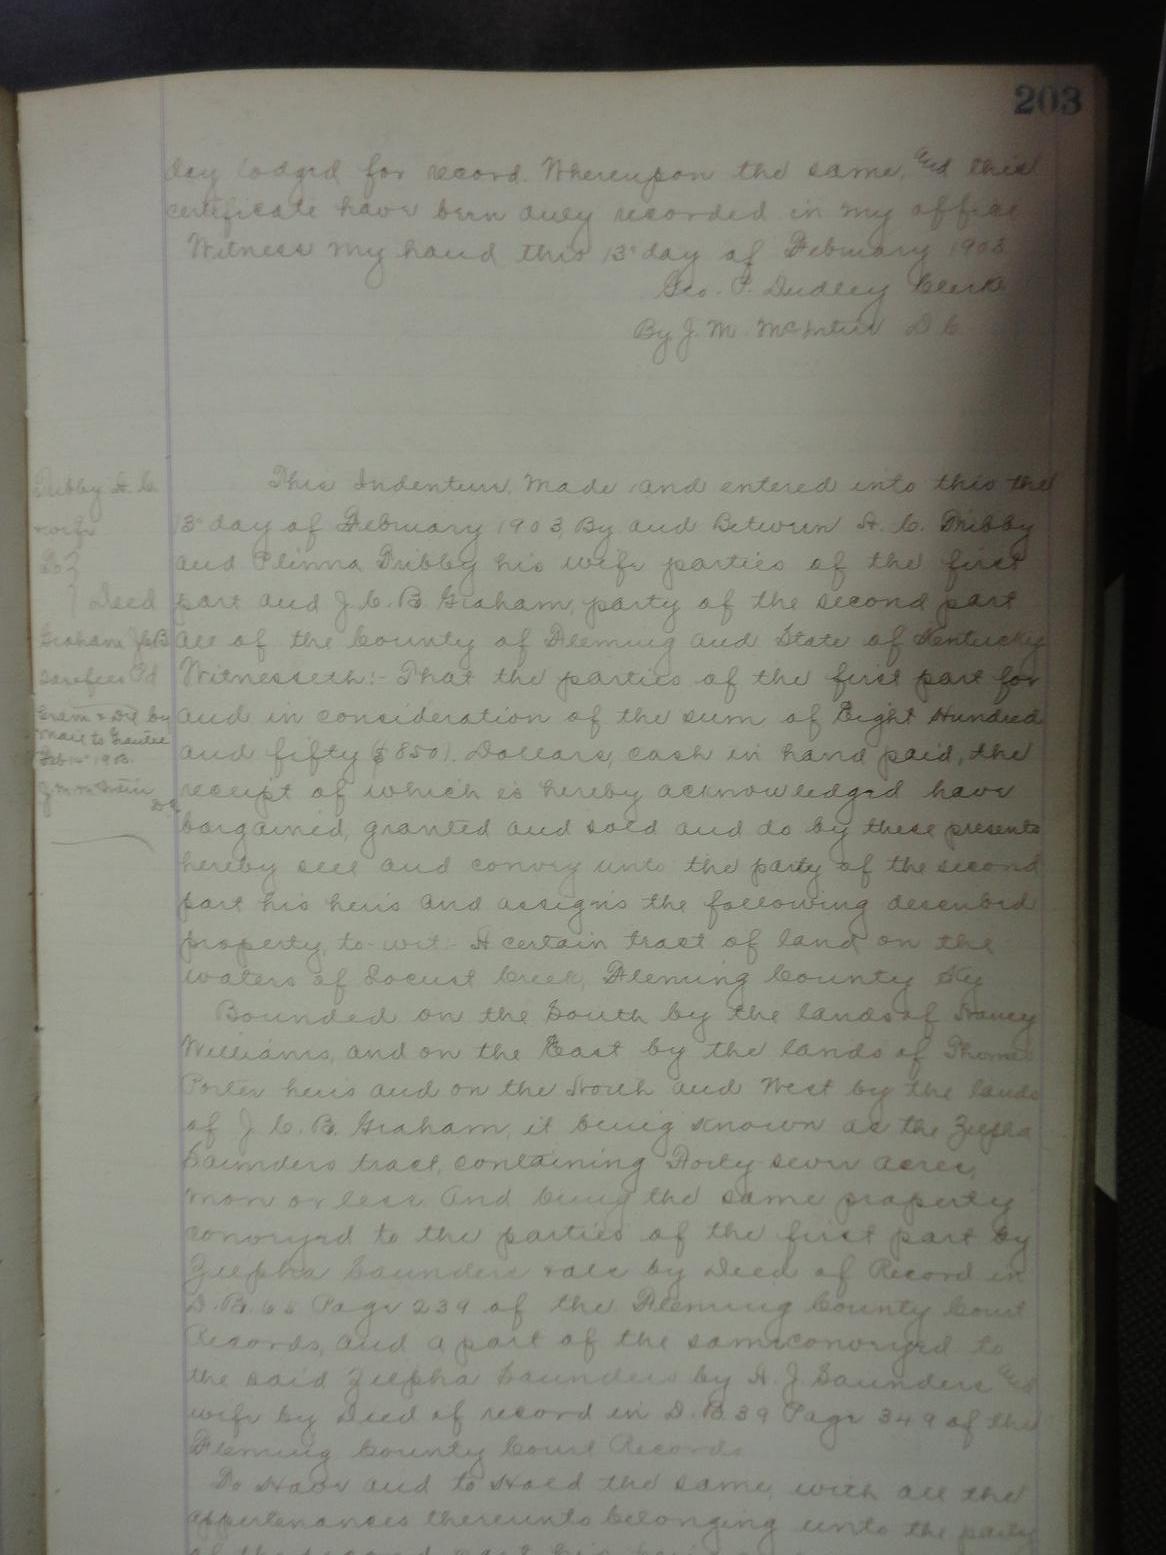 203
day lodged for record. Whereupon the same, and this
certificate have been duly recorded in my office
Witness my hand this 13" day of February 1903
Geo. P. Dudley Clerk
By J. M. McIntire D C
Dribby A. C.
+ wife
To
Deed
Graham J.C.B
Exam + Del by
Mail to Grantee
Feb 14" 1903.
J M McIntire
D.C.
This Indenture, Made and entered into this the
13" day of February 1903, By and Between A. C. Dribby
and Plinna Dribby his wife parties of the first
part and J. C. B. Graham, party of the second part
all of the County of Fleming and State of Kentucky
Witnesseth:- That the parties of the first part for
and in consideration of the sum of Eight Hundred
and fifty ($850). Dollars, cash in hand paid, the
receipt of which is hereby acknowledged have
bargained, granted and sold and do by these presents
hereby sell and convey unto the party of the second
part his heirs and assigns the following described
property, to-wit:- A certain tract of land on the
waters of Locust Creek, Fleming County Ky
Bounded on the South by the lands of
Williams, and on the East by the lands of Thomas
Porter heirs and on the North and West by the lands
of J. C. B. Graham, it being known as the Zilpha
Saunders tract, containing Forty seven acres,
more or less. And being the same property
conveyed to the parties of the first part by
Zilpha Saunders by Deed of Record in
D. B. Page 239 of the Fleming County Court
Records, and a part of the same conveyed to
the said Zilpha Saunders by A. J. Saunders and
wife by Deed of record in D. B. 39 Page 349 of the
Fleming County Court Records
To Have and to Hold the same, with all the
appertenances thereunto belonging unto the party
of the second part his heirs